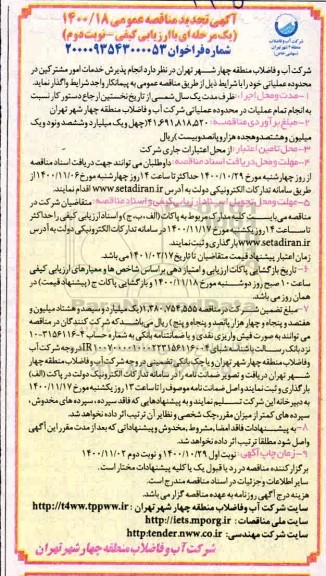 آگهی تجدید مناقصه عمومی ۱۴۰۰/۱۸
(یک مرحله ای با ارزیابی کیفی - نوبت دوم)
شماره فراخوان ۲۰۰۰۰۹۳۵۴۳۰۰۰۰۵۳
شرکت آب و فاضلاب
منطقه ۴ شهر تهران
(سهامی خاص)
شرکت آب و فاضلاب منطقه چهار شهر تهران در نظر دارد انجام پذیرش خدمات امور مشترکین در
محدوده عملیاتی خود را با شرایط ذیل از طریق مناقصه عمومی به پیمانکار واجد شرایط واگذار نماید.
۱- مدت و محل اجرا: ظرف مدت یک سال شمسی از تاریخ نخستین ارجاع دستور کار نسبت
به انجام تمام عملیات در محدوده عملیاتی شرکت آب و فاضلاب منطقه چهار شهر تهران
۲- مبلغ برآوردی مناقصه: ۴۱,۶۹۱,۸۱۸,۵۲۰ (چهل و یک میلیارد و ششصد و نود و یک
میلیون و هشتصد و هجده هزار و پانصد و بیست) ریال
۳- محل تامین اعتبار: از محل اعتبارات جاری شرکت
۴- مهلت و محل دریافت اسناد مناقصه: داوطلبان می توانند جهت دریافت اسناد مناقصه
از روز چهارشنبه مورخ ۱۴۰۰/۱۰/۲۹ حداکثر تا ساعت ۱۴ روز چهارشنبه مورخ ۱۴۰۰/۱۱/۰۶ از
طریق سامانه تدارکات الکترونیکی دولت به آدرس www.setadiran.ir اقدام نمایند.
۵- مهلت و محل تحویل اسناد ارزیابی کیفی و اسناد مناقصه: متقاضیان شرکت در
مناقصه می بایست کلیه مدارک مربوط به پاکات (الف، ب، ج) و اسناد ارزیابی کیفی را حداکثر
تا ساعت ۱۴ روز یکشنبه مورخ ۱۴۰۰/۱۱/۱۷ در سامانه تدارکات الکترونیکی دولت به آدرس
www.setadiran.ir بارگذاری و ثبت نمایند.
زمان اعتبار پیشنهاد قیمت متقاضیان تا تاریخ ۱۴۰۱/۰۲/۱۷ می باشد.
۶- تاریخ بازگشایی پاکات ارزیابی و امتیازدهی براساس شاخص ها و معیارهای ارزیابی کیفی
ساعت ۱۰ صبح روز دوشنبه مورخ ۱۴۰۰/۱۱/۱۸ و بازگشایی پاکات ج (پیشنهاد قیمت) در
همان روز می باشد.
۷- مبلغ تضمین شرکت در مناقصه ۱,۳۸۰,۷۵۴,۵۵۵ (یک میلیارد و سیصد و هشتاد میلیون و
هفتصد و پنجاه و چهار هزار پانصد و پنجاه و پنج) ریال می باشد که شرکت کنندگان در مناقصه
می توانند به صورت فیش واریزی نقدی و یا ضمانتنامه بانکی به شماره حساب
نزد بانک رسالت با شناسه شبای در وجه شرکت آب
وفاضلاب منطقه چهار شهر تهران و یا چک بانکی تضمینی در وجه شرکت آب و فاضلاب منطقه چهار
شهر تهران دریافت و تصویر ضمانت نامه را در سامانه تدارکات الکترونیک دولت در پاکت (الف)
بارگذاری و ثبت نمایند و اصل ضمانت نامه موصوف را تا ساعت ۱۳ روز یکشنبه مورخ ۱۴۰۰/۱۱/۱۷
به دبیرخانه این شرکت تسلیم نمایند و به پیشنهادهایی که فاقد سپرده، سپرده های مخدوش،
سپرده های کمتر از میزان مقرر، چک شخصی و نظایر آن ترتیب اثر داده نخواهد شد.
۸- به پیشنهادات فاقد امضا، مشروط، مخدوش و پیشنهاداتی که بعد از مدت مقرر این آگهی
واصل شود مطلقا ترتیب اثر داده نخواهد شد.
۹- زمان چاپ آگهی: نوبت اول ۱۴۰۰/۱۰/۲۹ و نوبت دوم ۱۴۰۰/۱۱/۰۲
برگزار کننده مناقصه در رد یا قبول یک یا کلیه پیشنهادات مختار است.
سایر اطلاعات و جزئیات در اسناد مناقصه مندرج است.
هزینه درج آگهی روزنامه به عهده مناقصه گزار می باشد.
سایت شرکت آب و فاضلاب منطقه چهار شهر تهران: http://t4ww.tppww.ir
سایت ملی مناقصات: http://iets.mporg.ir
سایت شرکت مهندسی: http:tender.nww.co.ir
شرکت آب و فاضلاب منطقه چهار شهر تهران